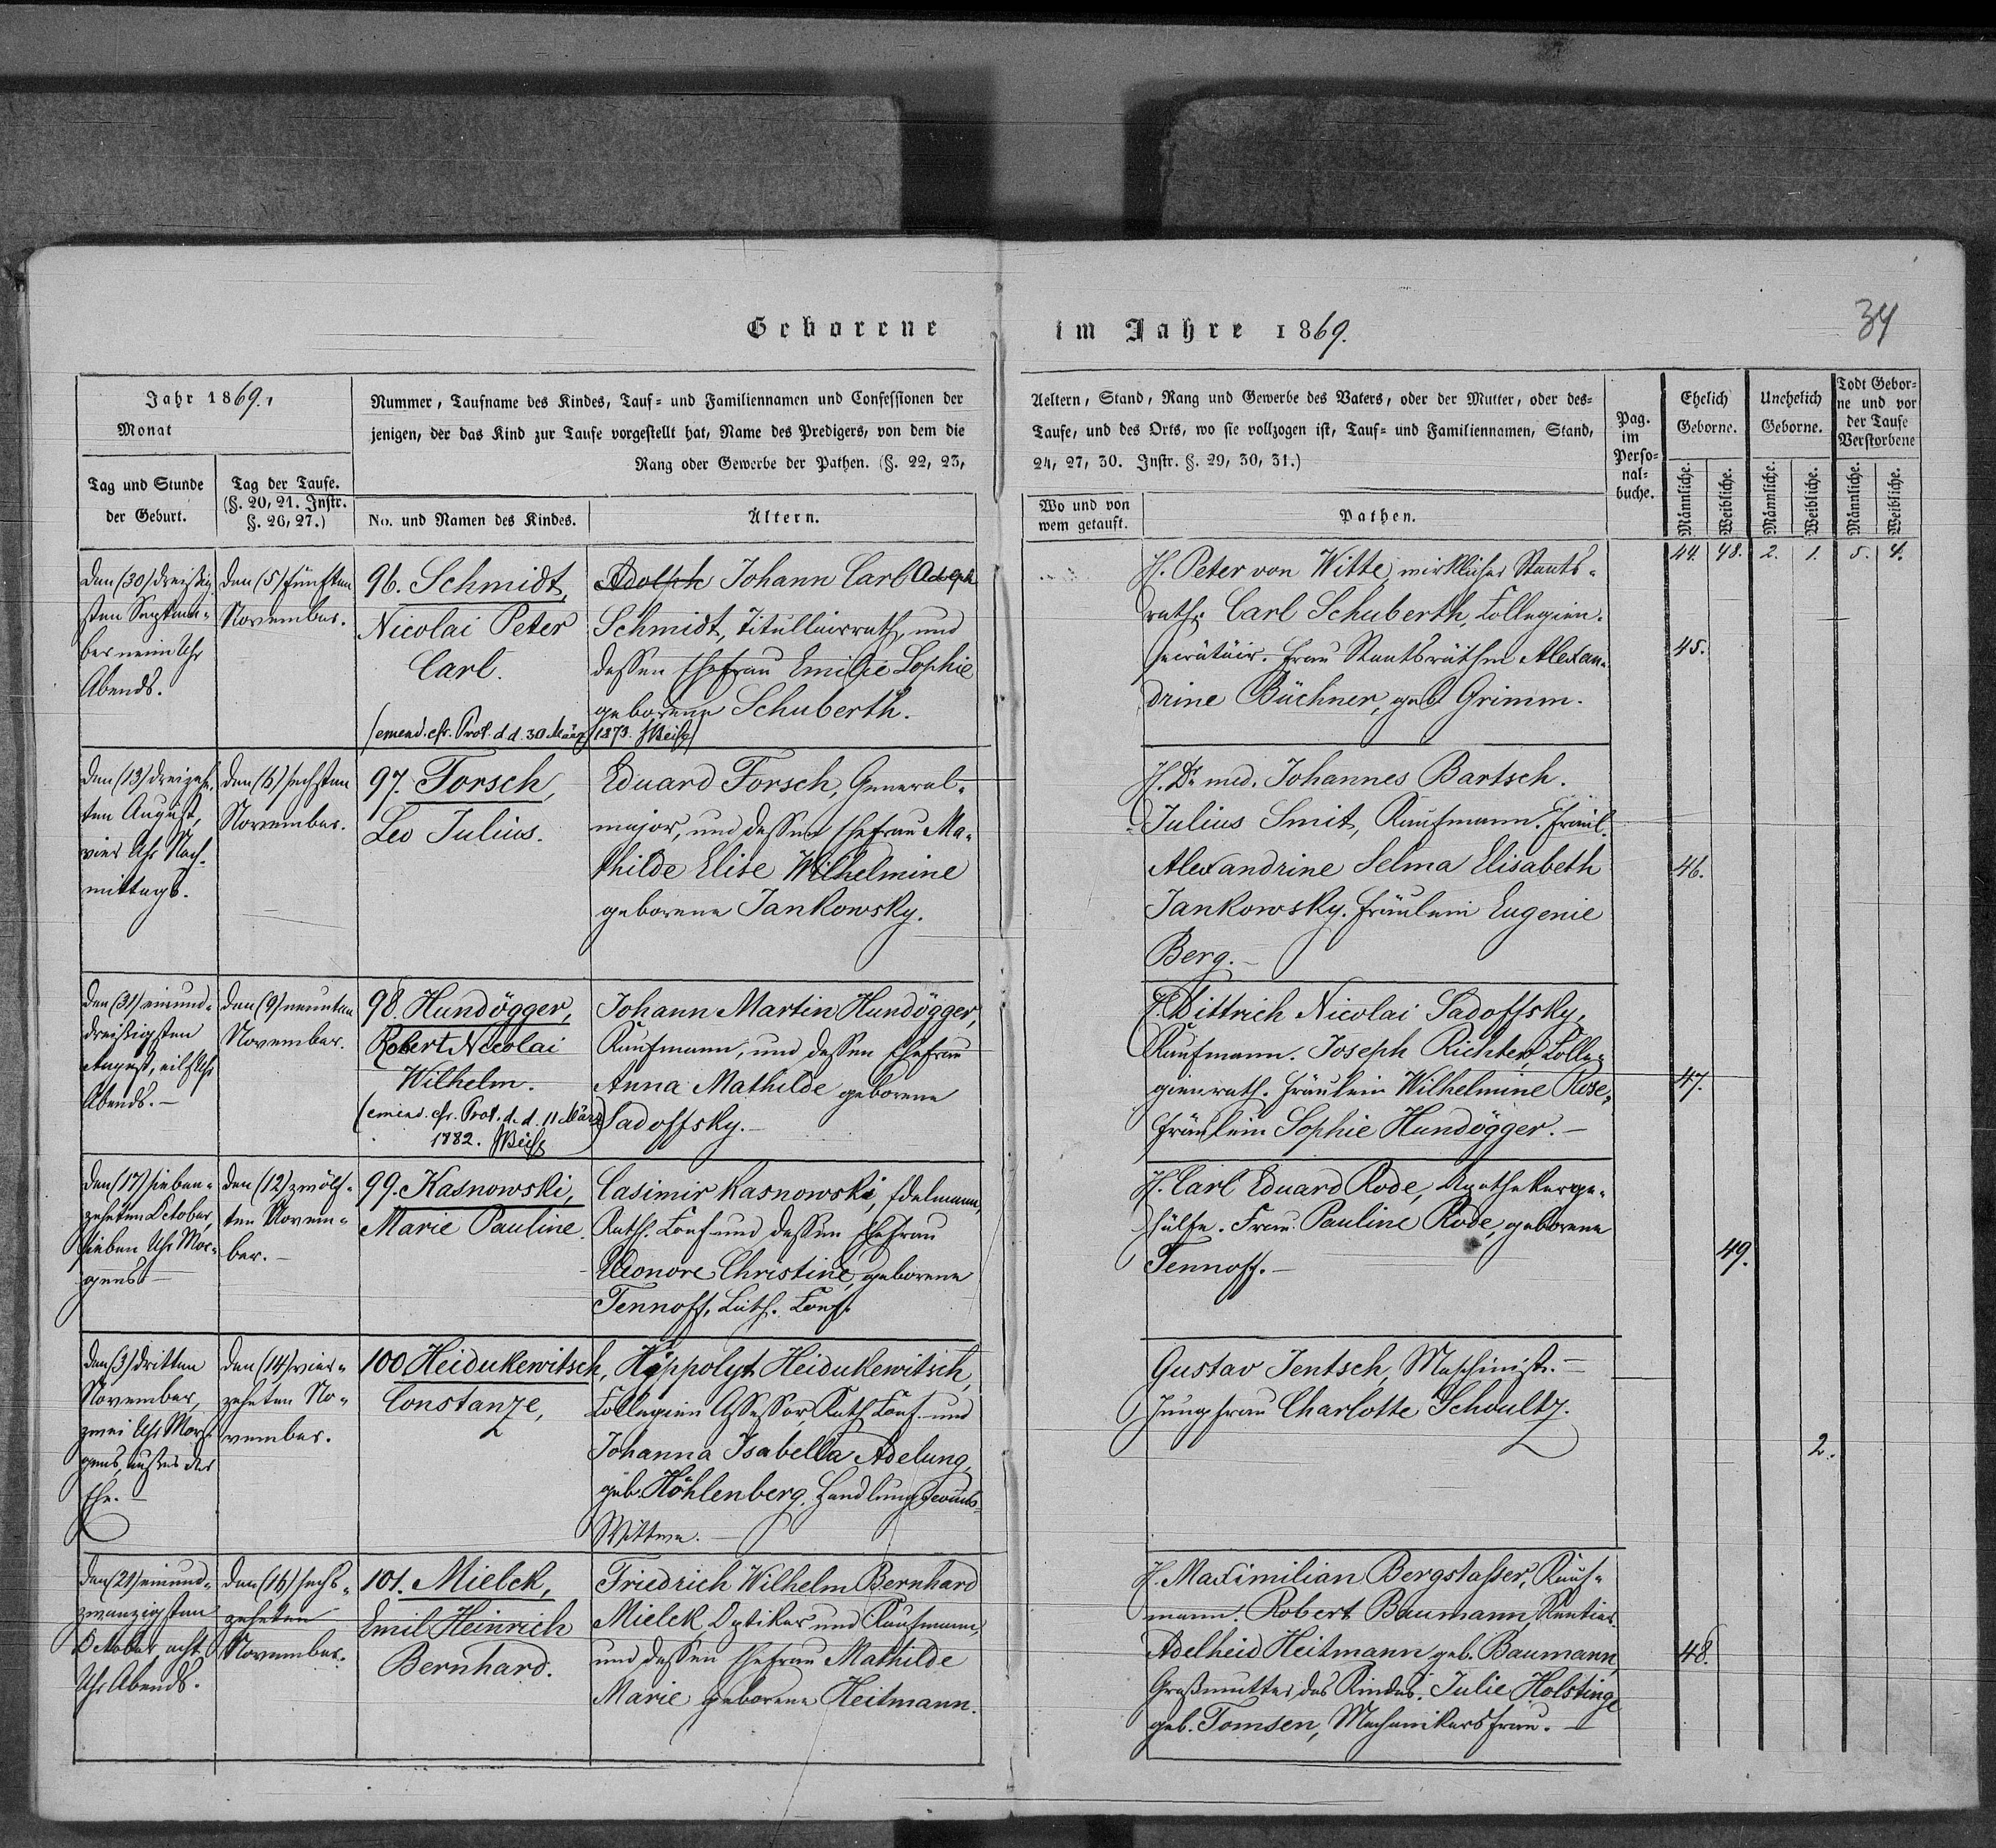 34
Geborene im Jahre 1869.
Jahr 1869.
Monat
Tag und Stunde
der Geburt.
Tag der Taufe.
(§. 20, 21. Instr.
§. 26, 27.)
Nummer, Taufname des Kindes, Tauf- und Familiennamen und Confessionen der
jenigen, der das Kind zur Taufe vorgestellt hat, Name des Predigers, von dem die
Rang oder Gewerbe der Pathen. (§. 22, 23,
No. und Namen des Kindes.
Ältern.
Aeltern, Stand, Rang und Gewerbe des Vaters, oder der Mutter, oder des-
Taufe, und des Orts, wo sie vollzogen ist, Tauf- und Familiennamen, Stand,
24, 27, 30. Instr. §. 29, 30, 31.)
Wo und von
wem getauft.
Pathen.
Pag.
im
Perso-
nal-
buche.
Ehelich
Geborne.
Unehelich
Geborne.
Todt Gebor-
ne und vor
der Taufe
Verstorbene
Männliche.
Weibliche.
Männliche.
Weibliche.
Männliche.
Weibliche.
44. 48. 2. 1. 5. 4.
Den (30) dreißig
sten Septem-
ber neun Uhr
Abends.
Den (5) fünften
November.
96. Schmidt,
Nicolai Peter
Carl.
(emend. cfr. Prot. d. d. 30 März 1873.
Adolph Johann Carl Adolph
Schmidt, Titulairrath, und
dessen Ehefrau Emilie Sophie
geborene Schuberth.
H. Peter von Witte, wirklicher Staats-
rath. Carl Schuberth, Collegien-
secretair. Frau Staatsräthin Alexan-
drine Büchner, geb. Grimm.
45.
Den (13) dreizehn-
ten August,
vier Uhr Nach-
mittags.
Den (6) sechsten
November.
97. Forsch,
Leo Julius.
Eduard Forsch, General-
major, und dessen Ehefrau Ma-
thilde Elise Wilhelmine
geborene Jankowsky.
H. Dr. med. Johannes Bartsch.
Julius Smit, Kaufmann. Fräul.
Alexandrine Selma Elisabeth
Jankowsky. Fräulein Eugenie
Berg.-
46.
Den (31) einund-
dreißigsten
August, eilf Uhr
Abends.-
Den (9) neunten
November.
98. Hundögger,
Robert Nicolai
Wilhelm.
(emend. cfr. Prot. d. d. 11 März
1882.
Johann Martin Hundögger,
Kaufmann, und dessen Ehefrau
Anna Mathilde geborene
Sadoffsky.-
H. Dittrich Nicolai Sadoffsky,
Kaufmann. Joseph Richter, Colle-
gienrath. Fräulein Wilhelmine Rose,
Fräulein Sophie Hundögger.-
47.
Den (17) sieben-
zehnten October,
sieben Uhr Mor-
gens.-
Den (12) zwölf-
ten Novem-
ber.-
99. Kasnowski,
Marie Pauline.
Casimir Kasnowski, Edelmann,
Kath. Conf. und dessen Ehefrau
Eleonore Christine, geborene
Tennoff, Luth. Conf.
H. Carl Eduard Rode, Apothekerge-
hülfe. Frau Pauline Rode, geborene
Tennoff.-
49.
Den (3) dritten
November,
zwei Uhr Mor-
gens, außer der
Ehe.-
Den (14) vier-
zehnten No-
vember.
100. Heidukewitsch,
Constanze,
Hippolyt Heidukewitsch,
Collegien Assessor, Kath. Conf. und
Johanna Isabella Adelung,
geb. Höhlenberg, Handlungscomis-
Wittwe.-
Gustav Jentsch, Maschinist.-
Jungfrau Charlotte Schoultz.
2.
Den (21) einund-
zwanzigsten
October, acht
Uhr Abends.
Den (16) sechs-
zehnten
November.
101. Mielck,
Emil Heinrich
Bernhard.
Friedrich Wilhelm Bernhard
Mielck, Optiker und Kaufmann,
und dessen Ehefrau Mathilde
Marie geborene Heitmann.
H. Maximilian Bergstasser, Kauf-
mann. Robert Baumann, Rentier.
Adelheid Heitmann geb. Baumann,
Großmutter des Kindes. Julie Holstinge
geb. Tomsen, Mechanikersfrau.-
48.